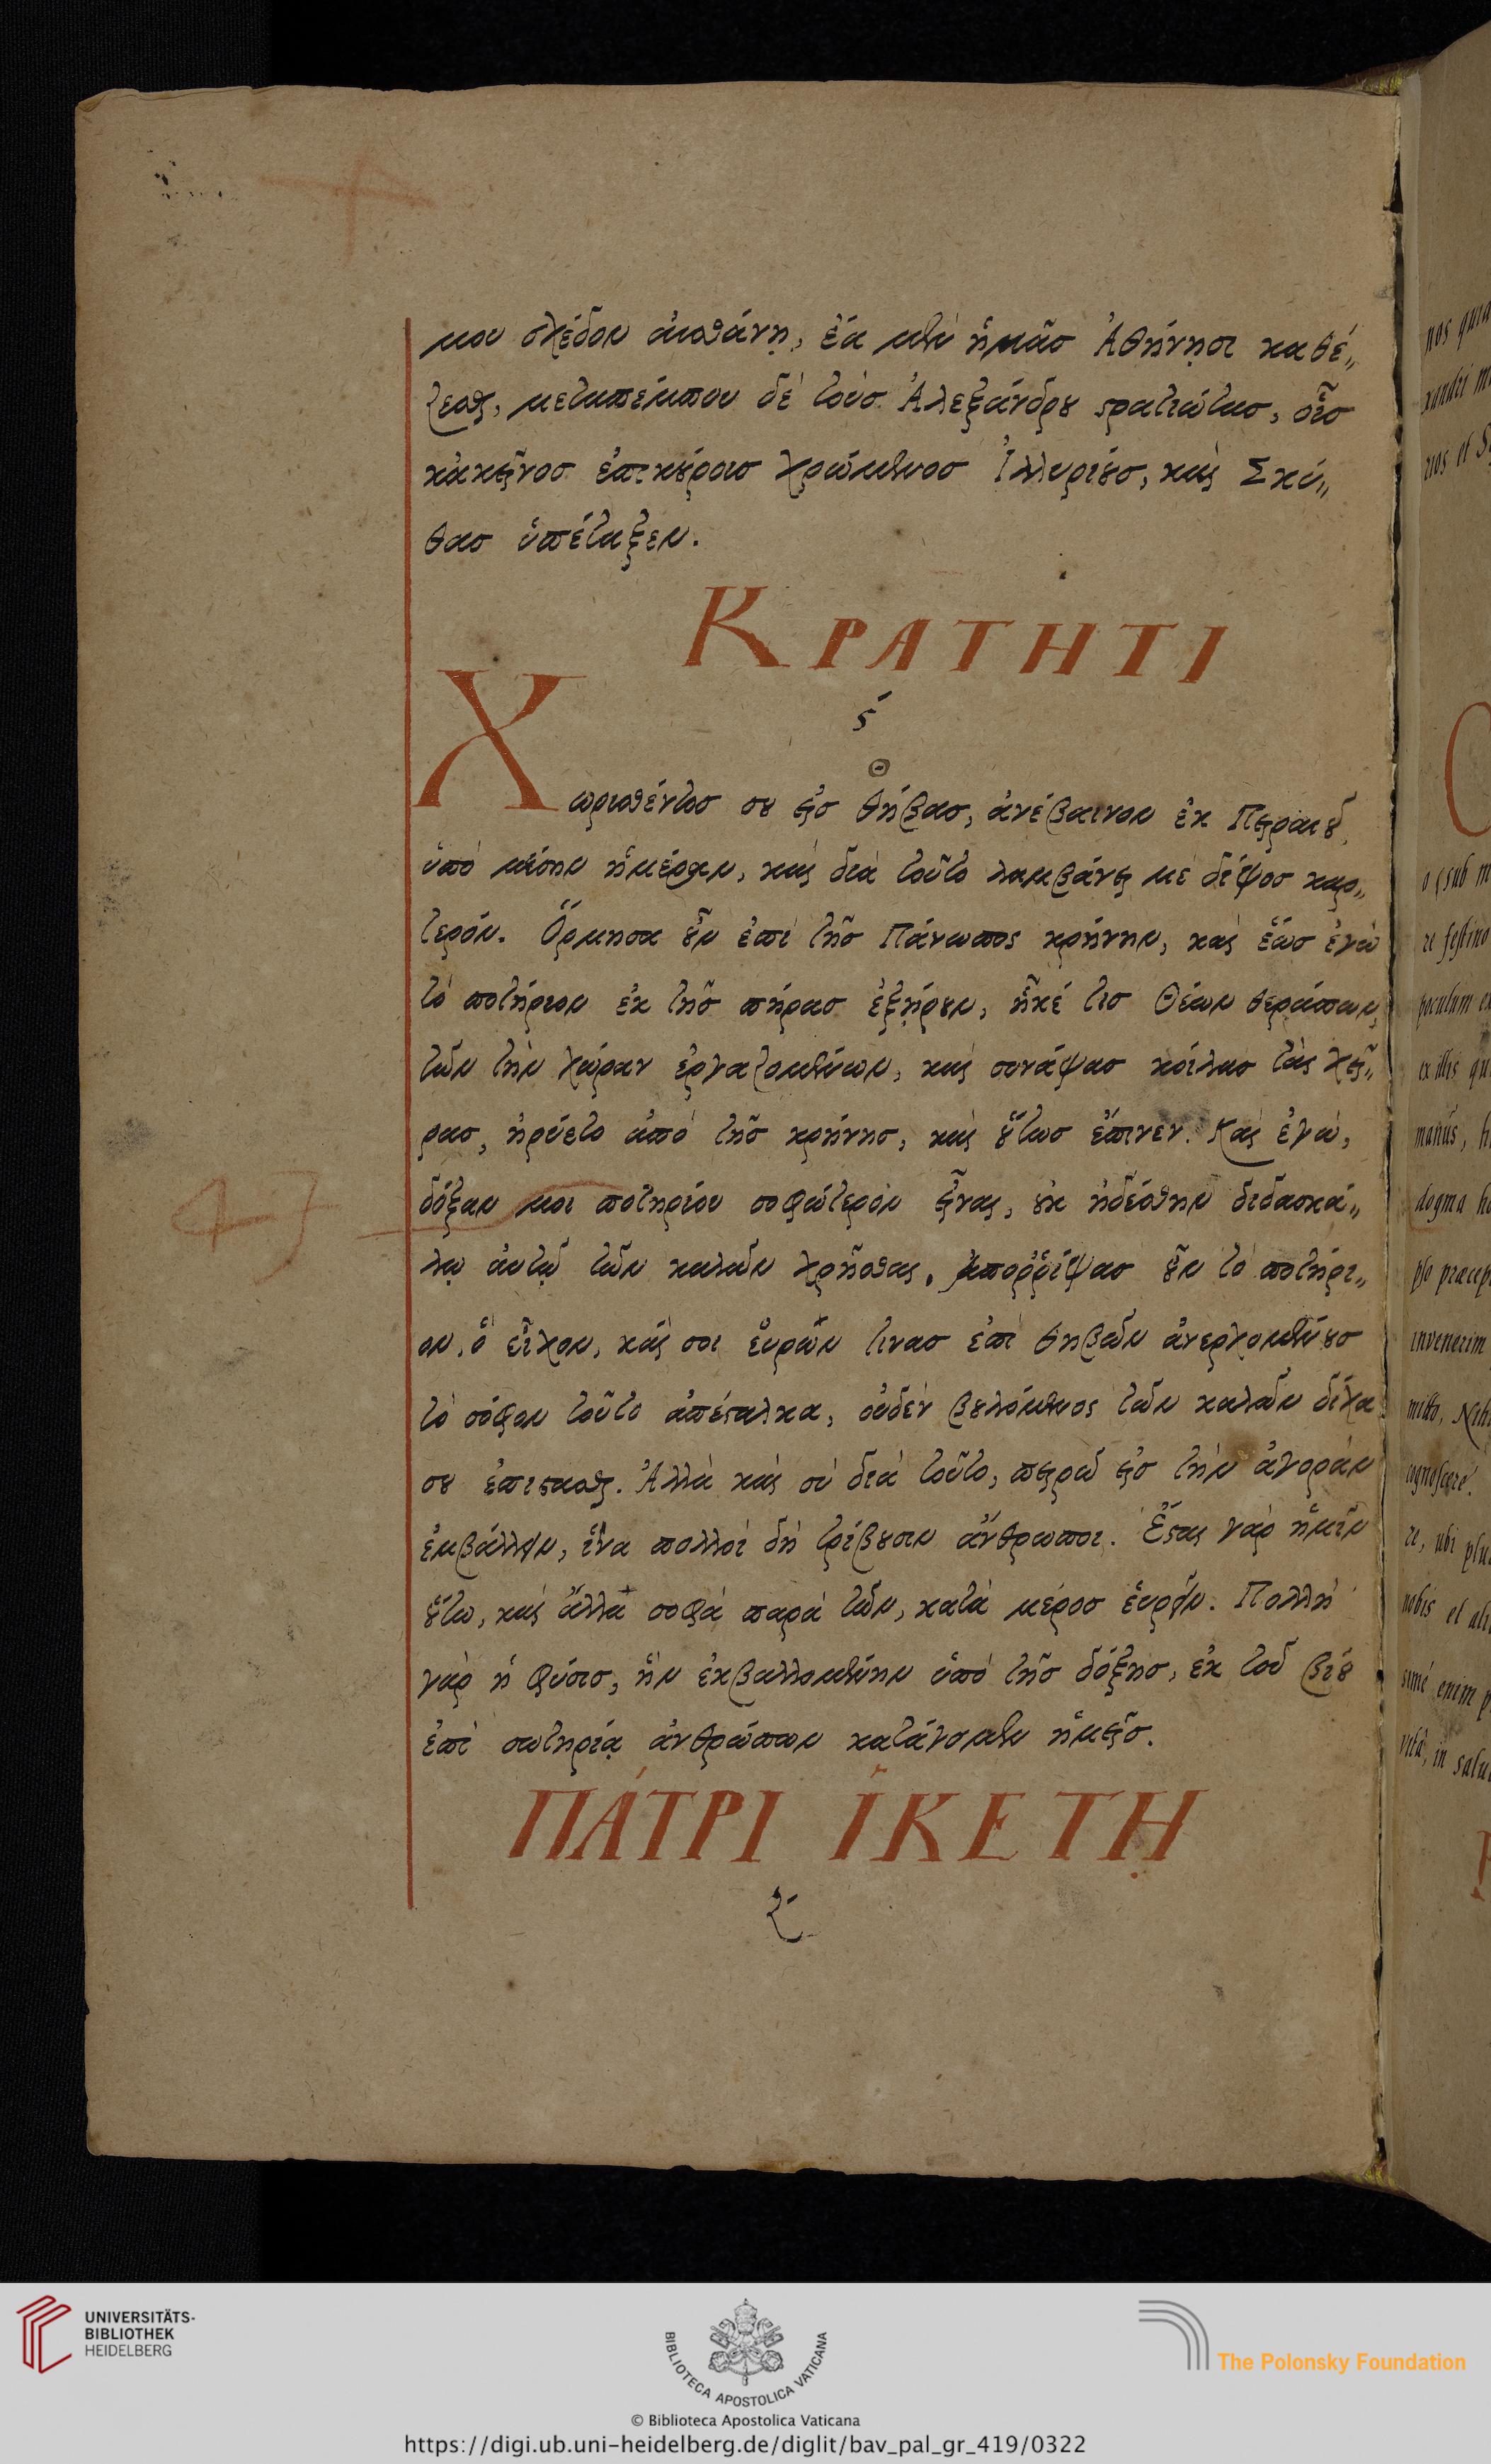 μου σχέδον ἀισθάνῃ, ἔα μὲν ἡμᾶσ Ἀθήνῃσι καθέ„
ζεσθαι, μεταπέμπου δὲ τοὺσ Ἀλεξάνδρου στρατιώτασ, οἷσ
κἀκεῖνοσ ἐπικούροισ χρώμενοσ Ἰλλυριοὺσ, καὶ Σκύ„
θασ ὑπέταξεν.
ΚΡΑΤΗΤΙ
ϛ́
Θ
Χωρισθέντοσ σου εἰσ θήβασ, ἀνέβαινον ἐκ Πειραιοῦ,
ὑπὸ μέσην ἡμέραν, καὶ διὰ τοῦτο λαμβάνει μὲ δίψοσ καρ„
τερόν. Ὅρμησα οὖν ἐπὶ τῆσ Πάνωπος κρήνην, καὶ ἕωσ ἐγὼ
τὸ ποτήριον ἐκ τῆσ πήρασ ἐξῄρουν, ἧκέ τισ Θέων θεράπων,
τῶν τὴν χώραν ἐργαζομένων, καὶ συνάψασ κοίλασ τὰς χεῖ„
ρασ, ἠρύετο ἀπὸ τῆσ κρήνησ, καὶ οὕτωσ ἔπινεν. Καὶ ἐγὼ,
δόξαν μοι ποτηρίου σοφώτερον εἶναι, οὐκ ἠδέσθην διδασκά„
λῳ ἀυτῷ τῶν καλῶν χρῆσθαι. ἀποῤῥίψασ οὖν τὸ ποτήρι„
ον, ὃ εἶχον, καὶ σοι ἑυρῶν τινασ ἐπὶ θηβῶν ἀνερχομένουσ
τὸ σόφον τοῦτο ἀπέσταλκα, οὐδὲν βουλόμενος τῶν καλῶν δίχα
σου ἐπίστασθαι. Ἀλλὰ καὶ σὺ διὰ τοῦτο, πειρῶ εἰσ τὴν ἀγορὰν
ἐμβάλλειν, ἵνα πολλοὶ δὴ τρίβουσιν ἄνθρωποι. Ἔσται γὰρ ἡμῖν
οὕτω, καὶ ἄλλα σοφὰ παρὰ τῶν, κατὰ μέροσ ἑυρεῖν. Πολλὴ
γὰρ ἡ φύσισ, ἣν ἐκβαλλομένην ὑπὸ τῆσ δόξησ, ἐκ τοῦ βίου
ἐπὶ σωτηρίᾳ ἀνθρώπων κατάγομεν ἡμεῖσ.
ΠΆΤΡΙ ἹΚΕΤῌ
ζ́
UNIVERSITÄTS-
BIBLIOTHEK
HEIDELBERG
BIBLIOTECA APOSTOLICA VATICANA
The Polonsky Foundation
© Biblioteca Apostolica Vaticana
https://digi.ub.uni-heidelberg.de/diglit/bav_pal_gr_419/0322